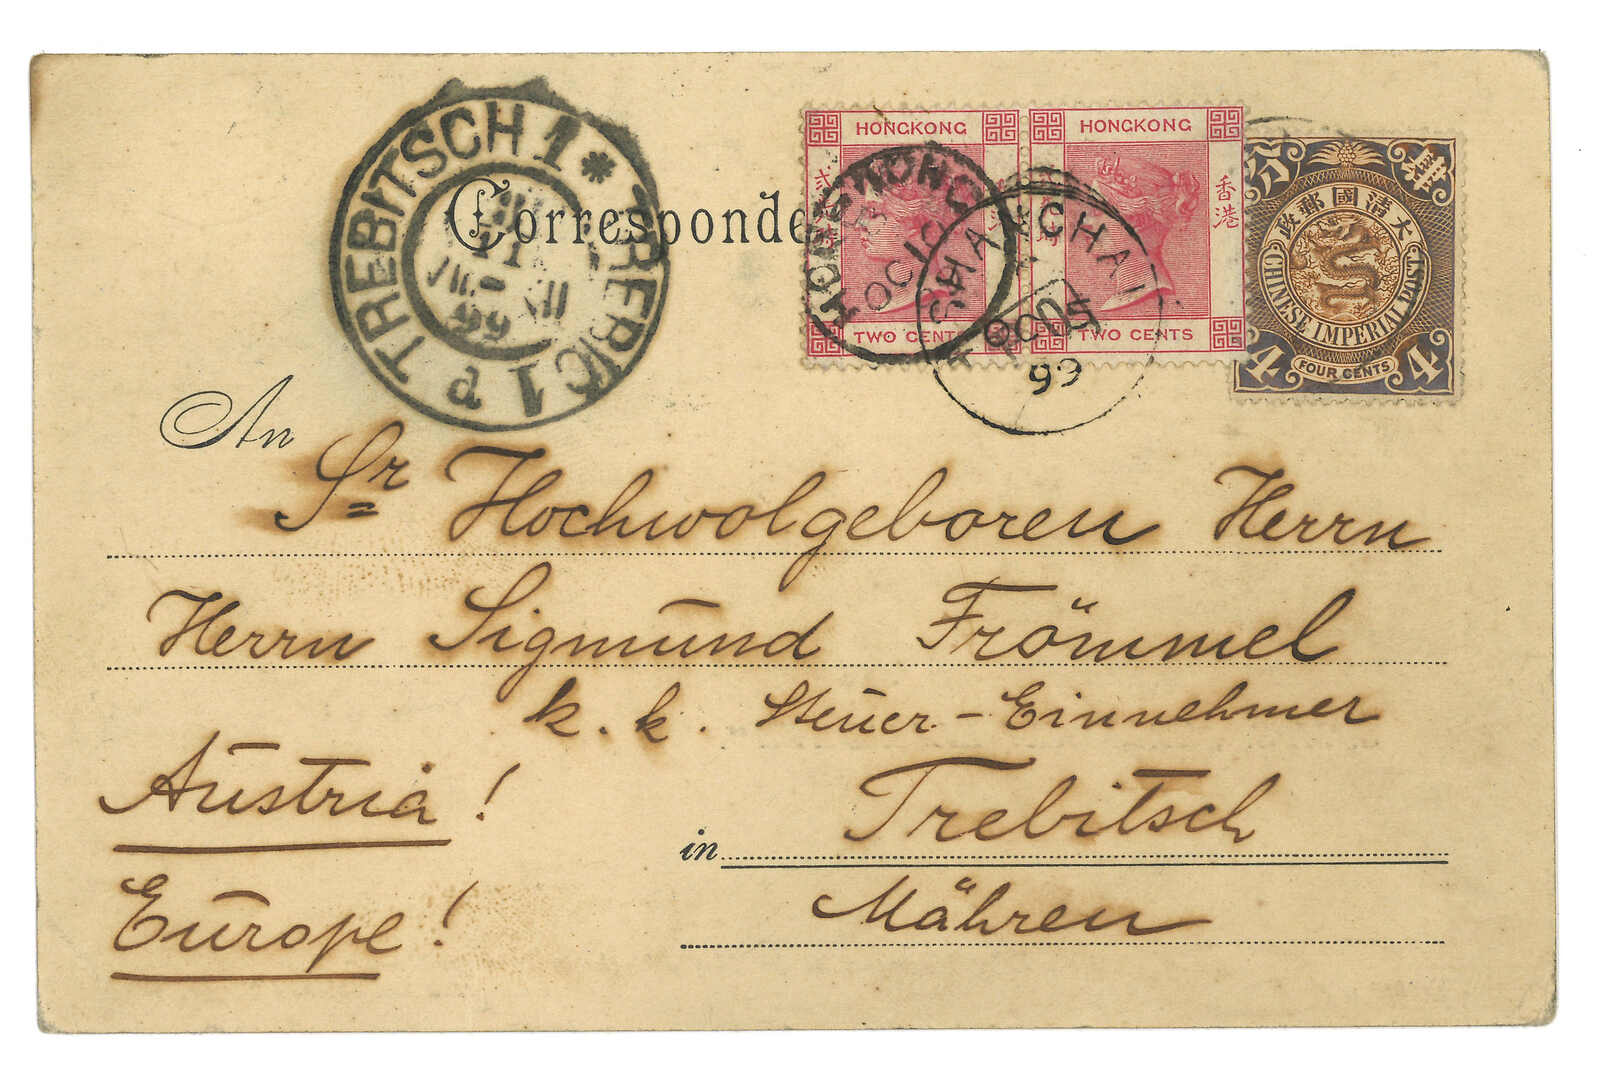 TREBITSCH 1 * TŘEBÍČ 1 a
11
99
Corresponde
HONGKONG
TWO CENTS
HONGKONG
香港
TWO CENTS
HONGKONG
B
OC 10
SHANGHAI
A
OC 5
99
大清國郵政
CHINESE IMPERIAL POST
FOUR CENTS
4 4
An
Sr Hochwolgeboren Herrn
Herrn Sigmund Frömmel
k. k. Steuer-Einnehmer
Austria!
in Trebitsch
Europe!
Mähren